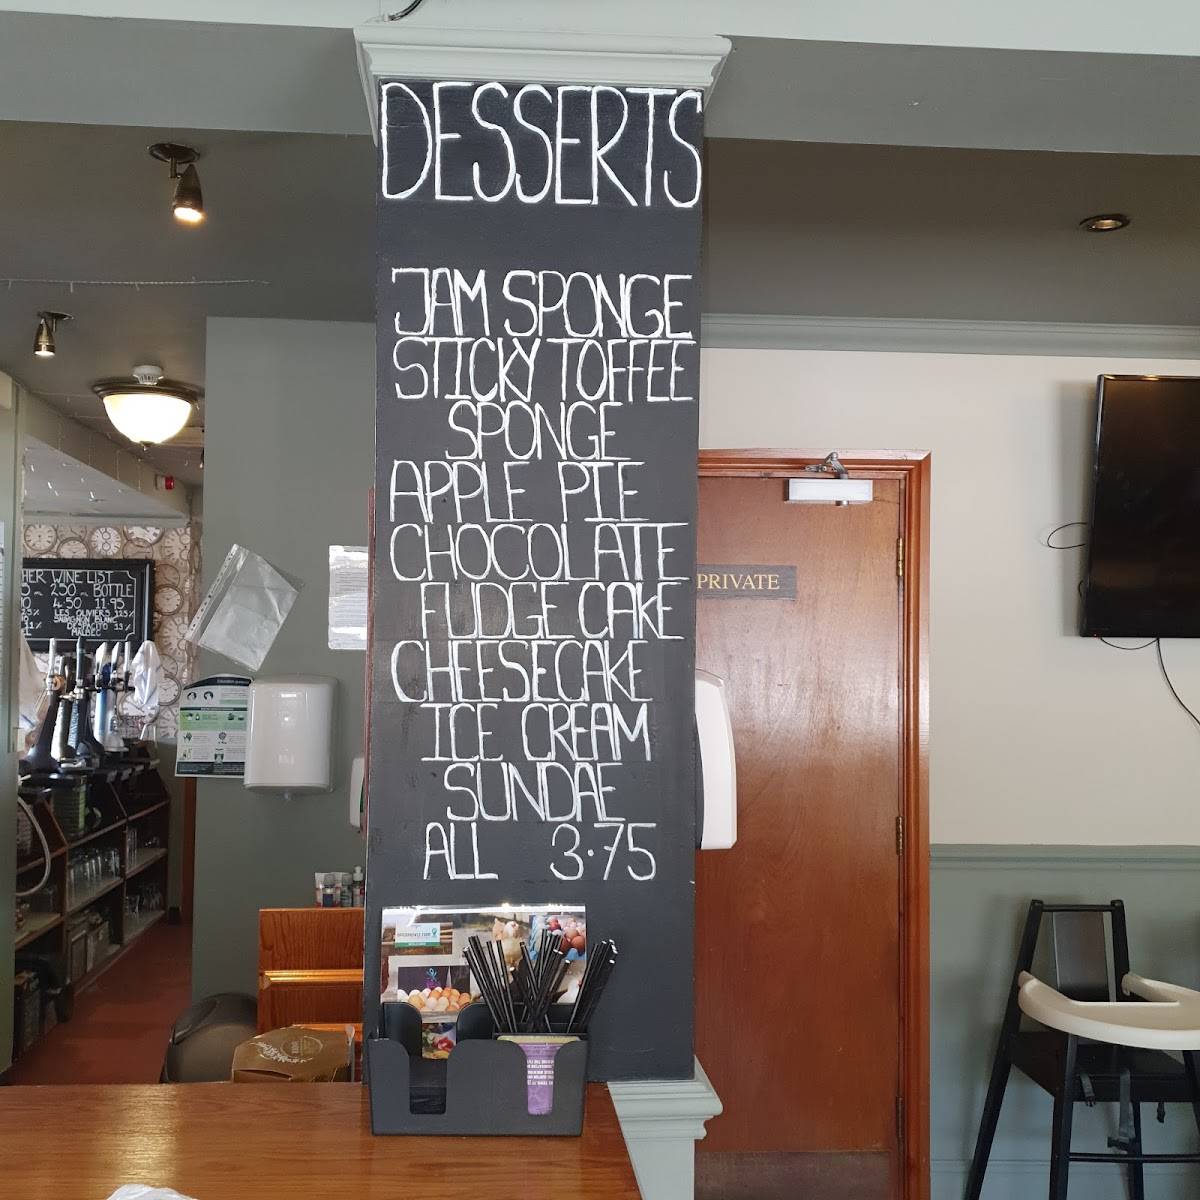 DESSERTS
JAM SPONGE
STICKY TOFFEE
SPONGE
APPLE PIE
CHOCOLATE
FUDGE CAKE
CHEESECAKE
ICE CREAM
SUNDAE
ALL 3.75
PRIVATE
HER WINE LIST
250 BOTTLE
4.50 11.95
LES OLIVIERS 12.5%
SAUVIGNON BLANC
DESPACITO 13%
MALBEC